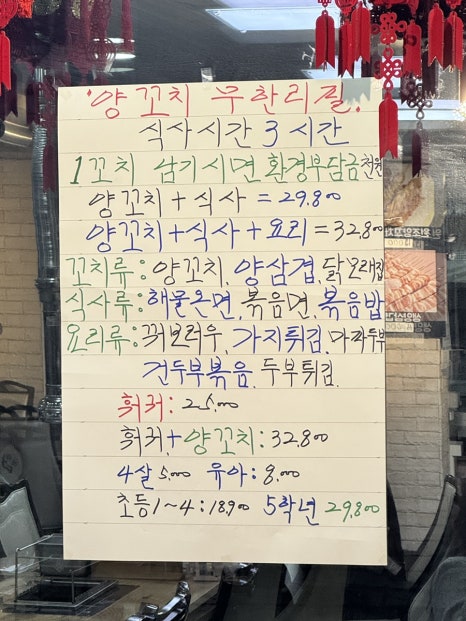 양꼬치 무한리필.
식사시간 3시간
1꼬치 남기시면 환경부담금천원
양꼬치+식사=29.800
양꼬치+식사+요리=32.800
꼬치류:양꼬치.양삼겹.닭모래집
식사류:해물온면.볶음면.볶음밥
요리류:꿔보러우.가지튀김.마파두부
건두부볶음.두부튀김.
훠궈:25.000
훠궈+양꼬치:32.800
4살 5.000 유아:8.000
초등1~4:18.900 5학년 29.800